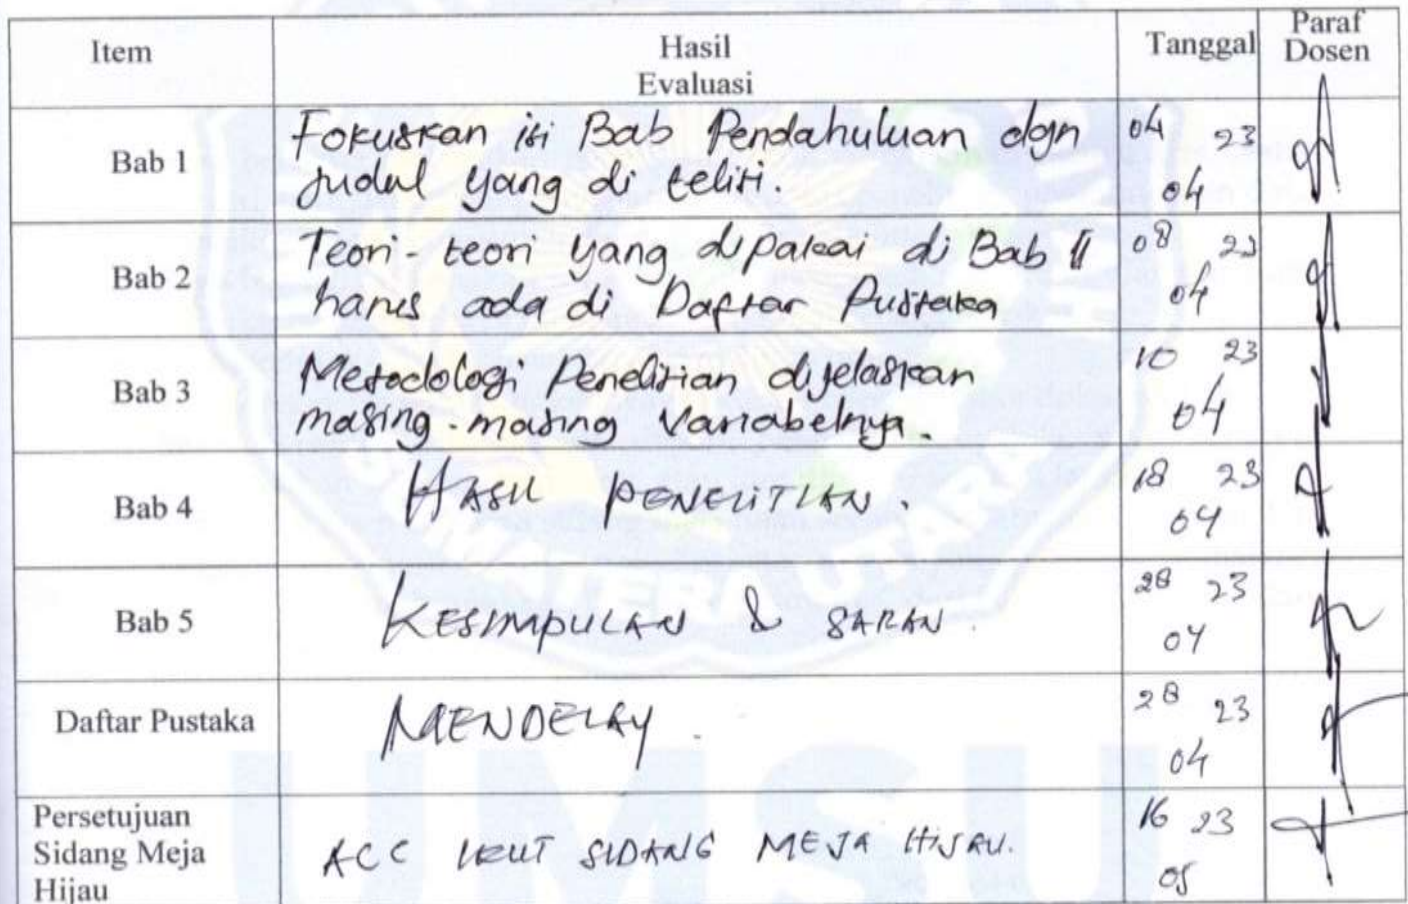 Item Hasil Evaluasi Tanggal Paraf Dosen
Bab 1
Fokuskan isi Bab Pendahuluan dgn
judul yang di teliti.
04 23
04
Bab 2
Teori-teori yang dipakai di Bab II
harus ada di Daftar Pustaka
08 23
04
Bab 3
Metodologi Penelitian dijelaskan
masing-masing Variabelnya.
10 23
04
Bab 4
HASIL PENELITIAN.
18 23
04
Bab 5
KESIMPULAN & SARAN.
28 23
04
Daftar Pustaka
MENDELAY.
28 23
04
Persetujuan
Sidang Meja
Hijau
ACC IKUT SIDANG MEJA HIJAU.
16 23
05
MATERA UTARA
UMSU